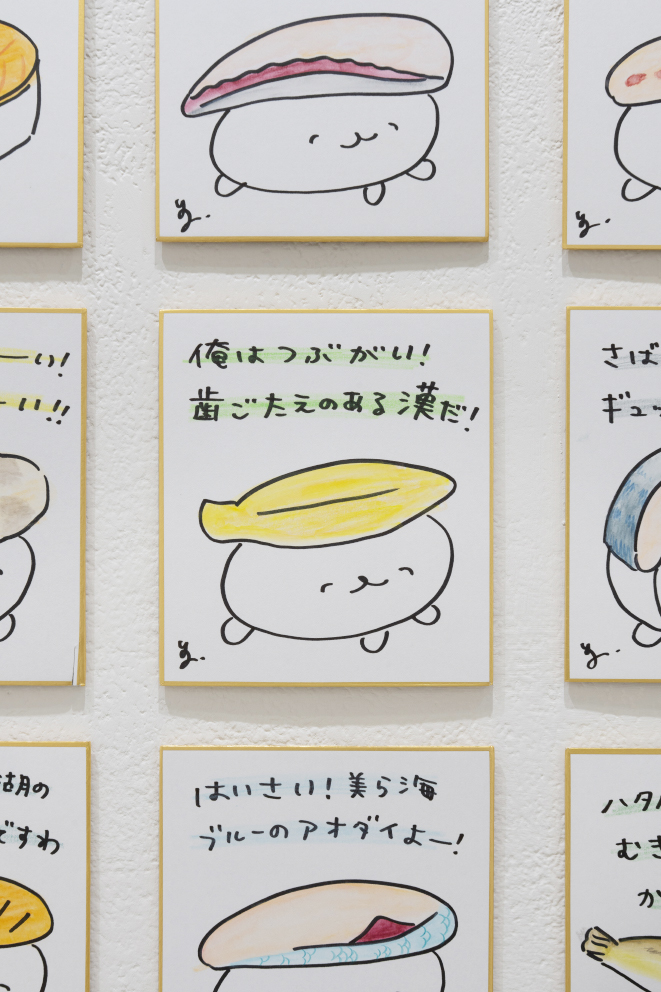 ーい!
ーい!!
俺はつぶがい!
歯ごたえのある漢だ!
さば
ギュッ
湖の
ですわ
はいさい!美ら海
ブルーのアオダイよー!
ハタハ
むき
か